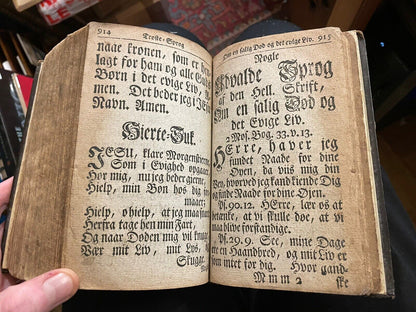 914 Trøste-Sprog
naae kronen, som er he
lagt for ham og alle Gud
Børn i det evige Liv.
men. Det beder jeg i JE
Navn. Amen.
Hierte-Suk.
JESU, klare Morgenstierne
Som i Evighed opgaae
Hør mig, nu jeg beder gierne,
Hielp, min Bøn hos dig
maae;
Hielp, o hielp, at jeg maa
Herfra tage hen min Fart,
Og naar Døden mig vil
Vær mit Liv, mit Lys,
Skygge.
Om en salig Død og det evige Liv. 915
Nogle
Udvalde Sprog
af den Hell. Skrift,
Om en salig Død og
det Evige Liv.
2 Mos. Bog. 33. v. 13.
HErre, haver jeg
fundet Naade for dine
Øyen, da viis mig din
Vey, hvorved jeg kand kiende Dig
og finde Naade for dine Øyen.
Ps. 90. 12. HErre, lær os at
betænke, at vi skulle døe, at vi
maa blive forstandige.
Ps. 29. 9. See, mine Dage
ere en Haandbred, og mit Liv er
som intet for dig. Hvor gand-
Mmm 2 ske